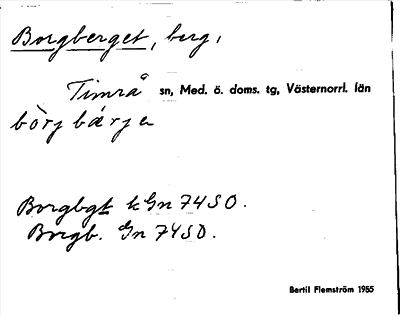 Borgberget, berg,
Timrå sn, Med. ö. doms. tg, Västernorrl. län
bòrjbærje
Borgbgt k Gn 74 SO.
Borgb. Gn 74 SO.
Bertil Flemström 1955